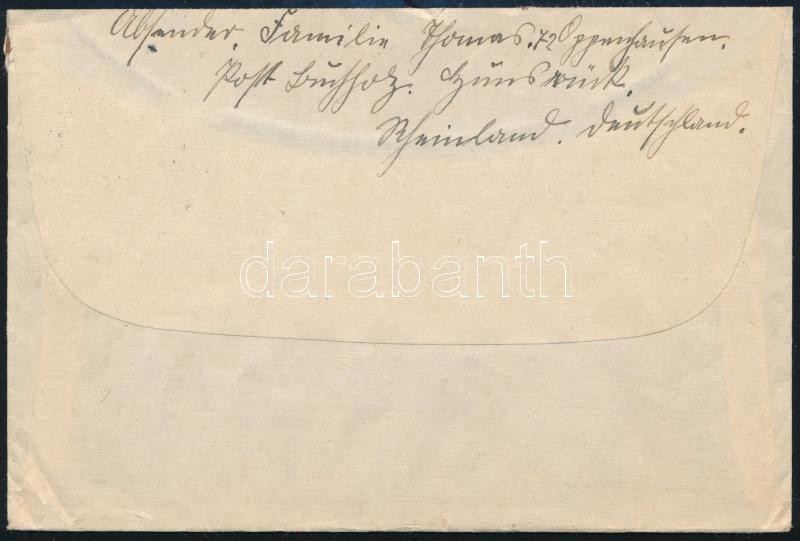 Absender. Familie Thomas. 72 Oppenhausen.
Post Buchholz. Hunsrück.
Rheinland. Deutschland.
darabanth